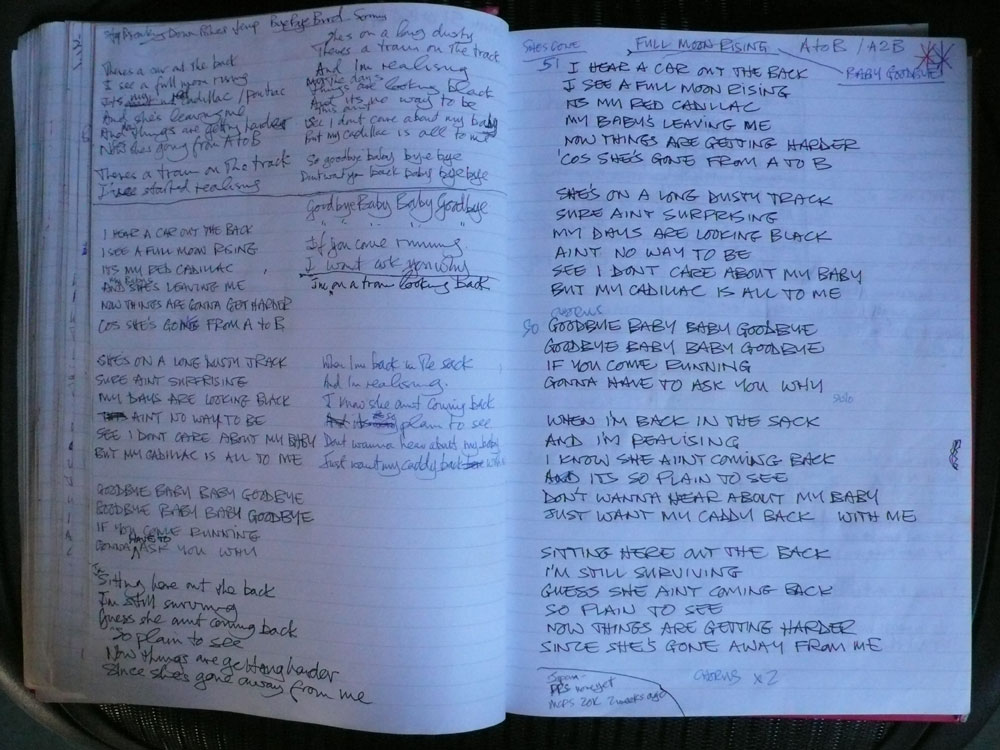 Down
Bye Bye Bird
Theres a car at the back
I see a full moon rising
Its my Cadillac / Pontiac
And she's leaving me
And things are getting harder
Now she's going from A to B
Theres a train on the track
I started realising
She's on a long dusty
Theres a train on the track
And I'm realising
My days
Things are looking black
And its no way to be
See I dont care about my baby
But my cadillac is all to me
So goodbye baby bye bye
back baby bye bye
Goodbye Baby Baby Goodbye
" " " "
If you come running
I wont ask you why
I'm on a train looking back
I HEAR A CAR OUT THE BACK
I SEE A FULL MOON RISING
ITS MY RED CADILLAC
AND SHE'S LEAVING ME
NOW THINGS ARE GONNA GET HARDER
COS SHE'S GONE FROM A to B
SHE'S ON A LONG DUSTY TRACK
SURE AINT SURPRISING
MY DAYS ARE LOOKING BLACK
AINT NO WAY TO BE
SEE I DONT CARE ABOUT MY BABY
BUT MY CADILLAC IS ALL TO ME
When I'm back in the sack
And I'm realising.
I know she aint coming back
And its so plain to see
Dont wanna hear about my baby
Just want my caddy back with
GOODBYE BABY BABY GOODBYE
GOODBYE BABY BABY GOODBYE
IF YOU COME RUNNING
GONNA HAVE TO ASK YOU WHY
Sitting here out the back
I'm still surviving
Guess she aint coming back
So plain to see
Now things are getting harder
Since she's gone away from me
SHES GONE
FULL MOON RISING
A to B / A2B
BABY GOODBYE
51
I HEAR A CAR OUT THE BACK
I SEE A FULL MOON RISING
ITS MY RED CADILLAC
MY BABY'S LEAVING ME
NOW THINGS ARE GETTING HARDER
'COS SHE'S GONE FROM A TO B
SHE'S ON A LONG DUSTY TRACK
SURE AINT SURPRISING
MY DAYS ARE LOOKING BLACK
AINT NO WAY TO BE
SEE I DONT CARE ABOUT MY BABY
BUT MY CADILLAC IS ALL TO ME
CHORUS
SO GOODBYE BABY BABY GOODBYE
GOODBYE BABY BABY GOODBYE
IF YOU COME RUNNING
GONNA HAVE TO ASK YOU WHY
SOLO
WHEN I'M BACK IN THE SACK
AND I'M REALISING
I KNOW SHE AIINT COMING BACK
AND ITS SO PLAIN TO SEE
DON'T WANNA HEAR ABOUT MY BABY
JUST WANT MY CADDY BACK WITH ME
SITTING HERE OUT THE BACK
I'M STILL SURVIVING
GUESS SHE AINT COMING BACK
SO PLAIN TO SEE
NOW THINGS ARE GETTING HARDER
SINCE SHE'S GONE AWAY FROM ME
CHORUS x 2
PRS
MCPS 20K 2 weeks ago